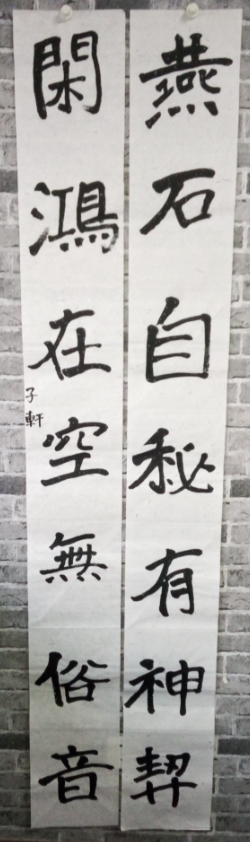 燕石自秘有神契
閑鴻在空無俗音
子軒